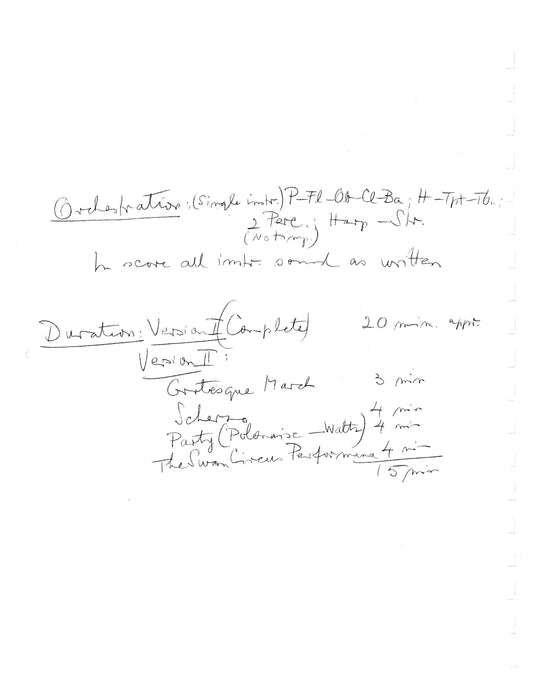 Orchestration: (Single instr.) P-Fl-Ob-Cl-Ba; H-Tpt-Tb.;
2 Perc.; Harp-Str.
(No timp.)
In score all instr. sound as written
Duration: Version I (Complete) 20 min. appr.
Version II:
Grotesque March 3 min
Scherzo 4 min
Party (Polonaise - Waltz) 4 min
The Swan Circus Performance 4 min
15 min